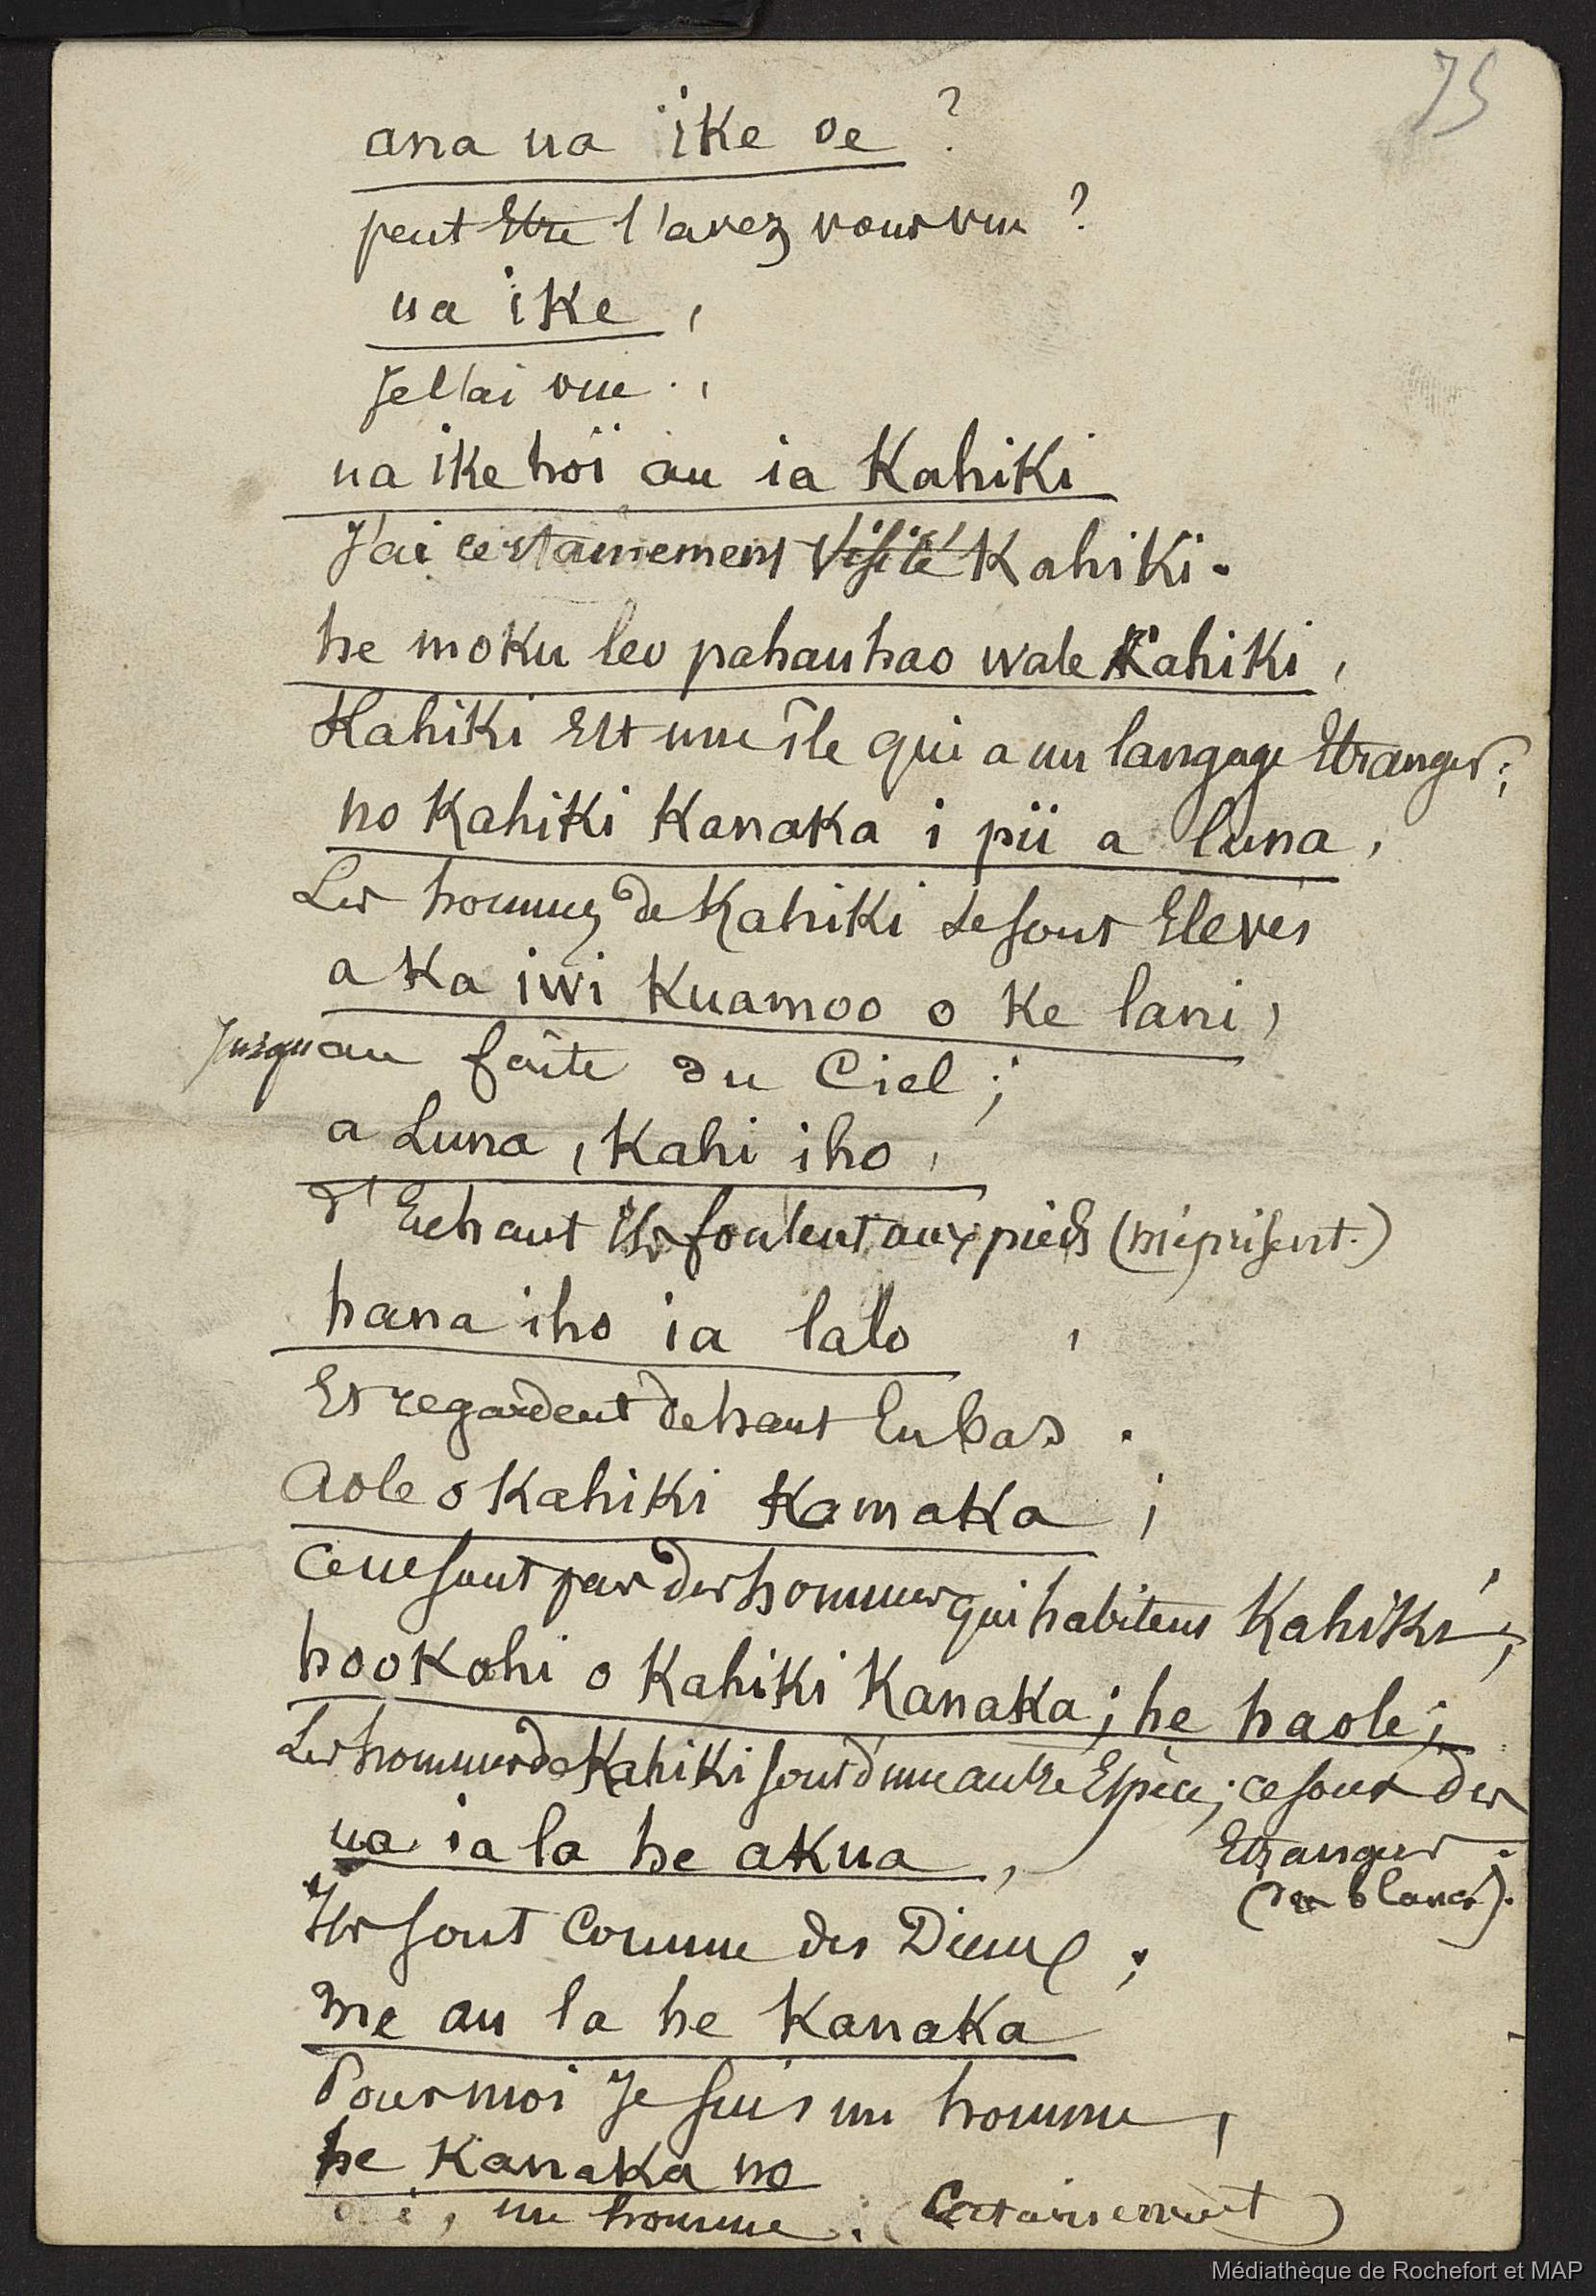 75
ana ua ike oe ?
peut Etre l'avez vous vu ?
ua ike ,
Je l'ai vue . ,
ua ike hoï au ia Kahiki
J'ai certainement Visité Kahiki.
he moku leo pahauhao wale Kahiki ,
Kahiki Est une île qui a un langage Etranger ;
no Kahiki Kanaka i pii a luna ,
Les hommes de Kahiki se sont Elevés
a Ka iwi Kuamoo o Ke lani ,
Jusqu au faîte du Ciel ;
a Luna , Kahi iho ,
d'En haut ils foulent aux pieds (méprisent.)
hana iho ia lalo ,
Et regardent de haut En bas .
Aole o Kahiki Kamaka ;
Ce ne sont pas des hommes qui habitent Kahiki ;
hookahi o Kahiki Kanaka ; he haole ;
Les hommes de Kahiki sont d'une autre Espèce ; ce sont des
Etrangers .
(des blancs).
ua ia la he akua ,
Ils sont Comme des Dieux ;
me au la he Kanaka
Pour moi Je suis un homme ,
he Kanaka no
, un homme . (Certainement)
Médiathèque de Rochefort et MAP